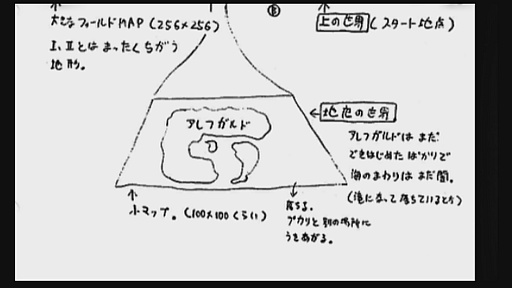 大きなフィールドMAP (256×256)
I、IIとは まったくちがう
地形。
上の世界 (スタート地点)
アレフガルド
← 地底の世界
アレフガルドは まだ
できはじめた ばかりで
海のまわりは まだ闇。
(滝になって落ちているとか)
小マップ。(100×100くらい)
落ちる。
プカリと 別の場所に
うきあがる。